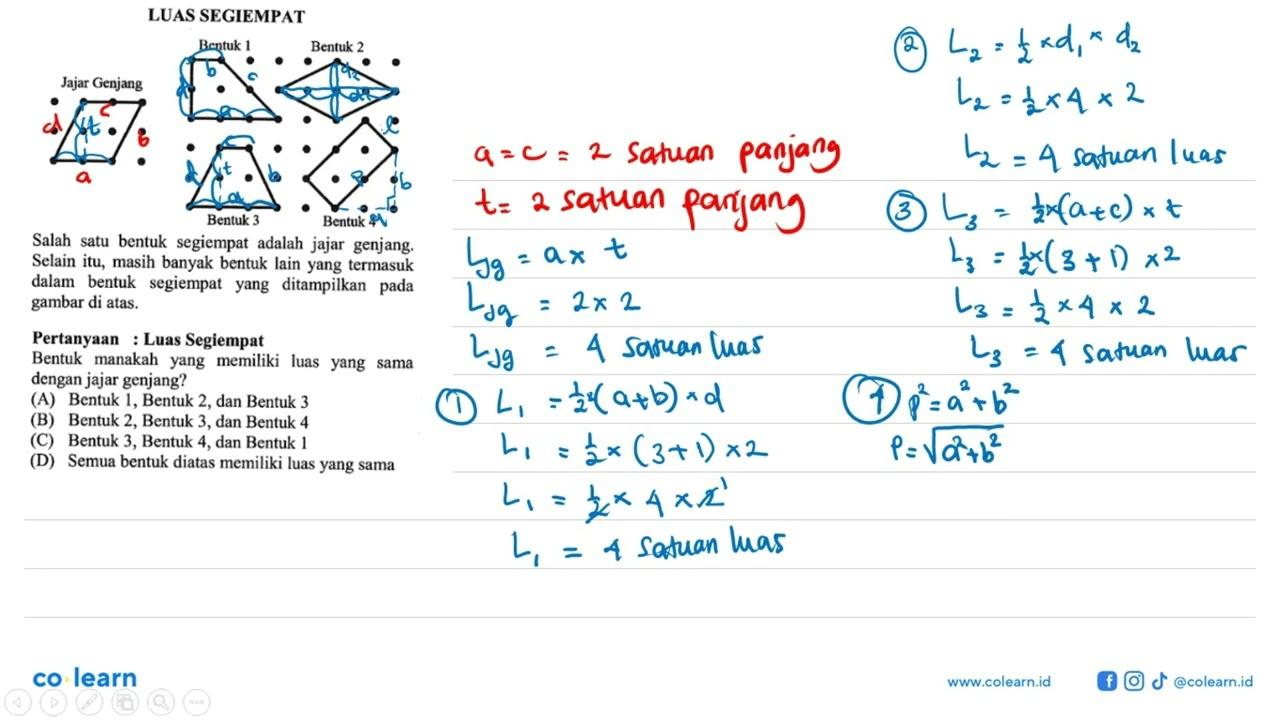 LUAS SEGIEMPAT
Bentuk 1
Bentuk 2
Jajar Genjang
b
c
d
a
d2
d1
d
c
t
b
a
t
d
b
a
l
p
b
a
Bentuk 3
Bentuk 4
Salah satu bentuk segiempat adalah jajar genjang.
Selain itu, masih banyak bentuk lain yang termasuk
dalam bentuk segiempat yang ditampilkan pada
gambar di atas.
Pertanyaan : Luas Segiempat
Bentuk manakah yang memiliki luas yang sama
dengan jajar genjang?
(A) Bentuk 1, Bentuk 2, dan Bentuk 3
(B) Bentuk 2, Bentuk 3, dan Bentuk 4
(C) Bentuk 3, Bentuk 4, dan Bentuk 1
(D) Semua bentuk diatas memiliki luas yang sama
a = c = 2 satuan panjang
t = 2 satuan panjang
Ljg = a × t
Ljg = 2 × 2
Ljg = 4 satuan luas
① L₁ = ½ × (a+b) × d
L₁ = ½ × (3+1) × 2
L₁ = ½ × 4 × 2 1
L₁ = 4 satuan luas
② L₂ = ½ × d₁ × d₂
L₂ = ½ × 4 × 2
L₂ = 4 satuan luas
③ L₃ = ½ × (a+c) × t
L₃ = ½ × (3+1) × 2
L₃ = ½ × 4 × 2
L₃ = 4 satuan luas
④ p² = a² + b²
p = √(a² + b²)
co learn
www.colearn.id
@colearn.id